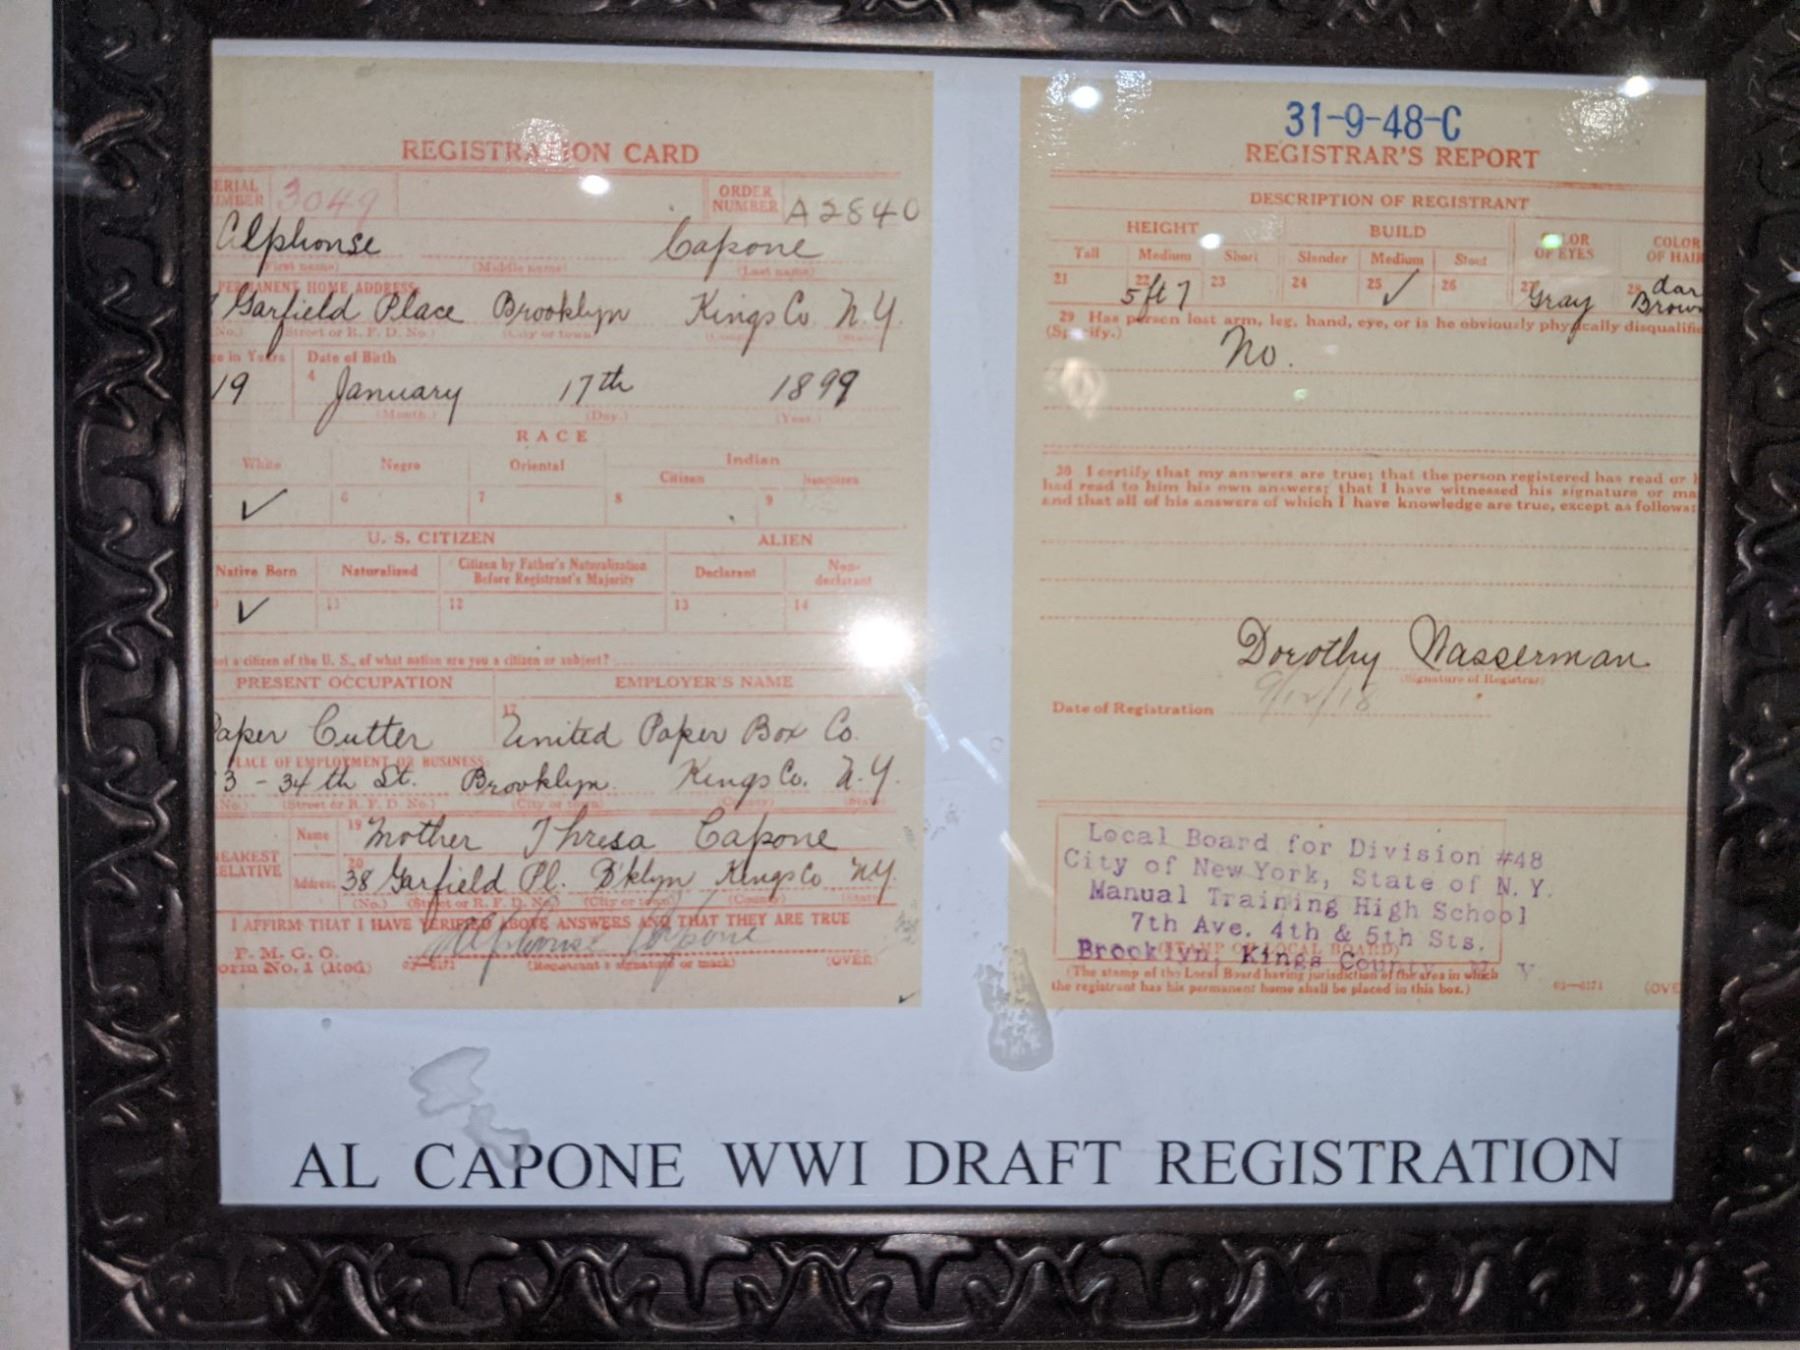 REGISTRATION CARD
ERIAL
UMBER 3049 ORDER
NUMBER A2840
Alphonse Capone
(First name) (Middle name) (Last name)
PERMANENT HOME ADDRESS:
Garfield Place Brooklyn Kings Co N.Y.
(No.) (Street or R. F. D. No.) (City or town) (County) (State)
ge in Years Date of Birth
19 4 January 17th 1899
(Month.) (Day.) (Year.)
RACE
White Negro Oriental Indian
Citizen Noncitizen
✓ 6 7 8 9
U. S. CITIZEN ALIEN
Native Born Naturalized Citizen by Father's Naturalization
Before Registrant's Majority Declarant Non-
declarant
✓ 11 12 13 14
not a citizen of the U. S., of what nation are you a citizen or subject?
PRESENT OCCUPATION EMPLOYER'S NAME
Paper Cutter 17 United Paper Box Co.
PLACE OF EMPLOYMENT OR BUSINESS:
3 - 34 th St. Brooklyn Kings Co. N.Y.
(No.) (Street or R. F. D. No.) (City or town) (County) (State)
NEAREST
RELATIVE Name 19 Mother Thresa Capone
Address 20 38 Garfield Pl. B'klyn Kings Co N.Y.
(No.) (Street or R. F. D. No.) (City or town) (County) (State)
I AFFIRM THAT I HAVE VERIFIED ABOVE ANSWERS AND THAT THEY ARE TRUE
P. M. G. O.
orm No. 1 (Red) 03—6171 Alphonse Capone
(Registrant's signature or mark) (OVER)
31-9-48-C
REGISTRAR'S REPORT
DESCRIPTION OF REGISTRANT
HEIGHT BUILD COLOR
OF EYES COLOR
OF HAIR
Tall Medium Short Slender Medium Stout
21 22 5 ft 7 23 24 25 ✓ 26 27 Gray 28 dar
Brown
29 Has person lost arm, leg, hand, eye, or is he obviously physically disqualifie
(Specify.)
No.
30 I certify that my answers are true; that the person registered has read or h
had read to him his own answers; that I have witnessed his signature or ma
and that all of his answers of which I have knowledge are true, except as follows:
Dorothy Wasserman
(Signature of Registrar)
Date of Registration 9/12/18
Local Board for Division #48
City of New York, State of N. Y.
Manual Training High School
7th Ave. 4th & 5th Sts.
Brooklyn, Kings County, N. Y
(STAMP OF LOCAL BOARD)
(The stamp of the Local Board having jurisdiction of the area in which
the registrant has his permanent home shall be placed in this box.) 03—6171 (OVE
AL CAPONE WWI DRAFT REGISTRATION